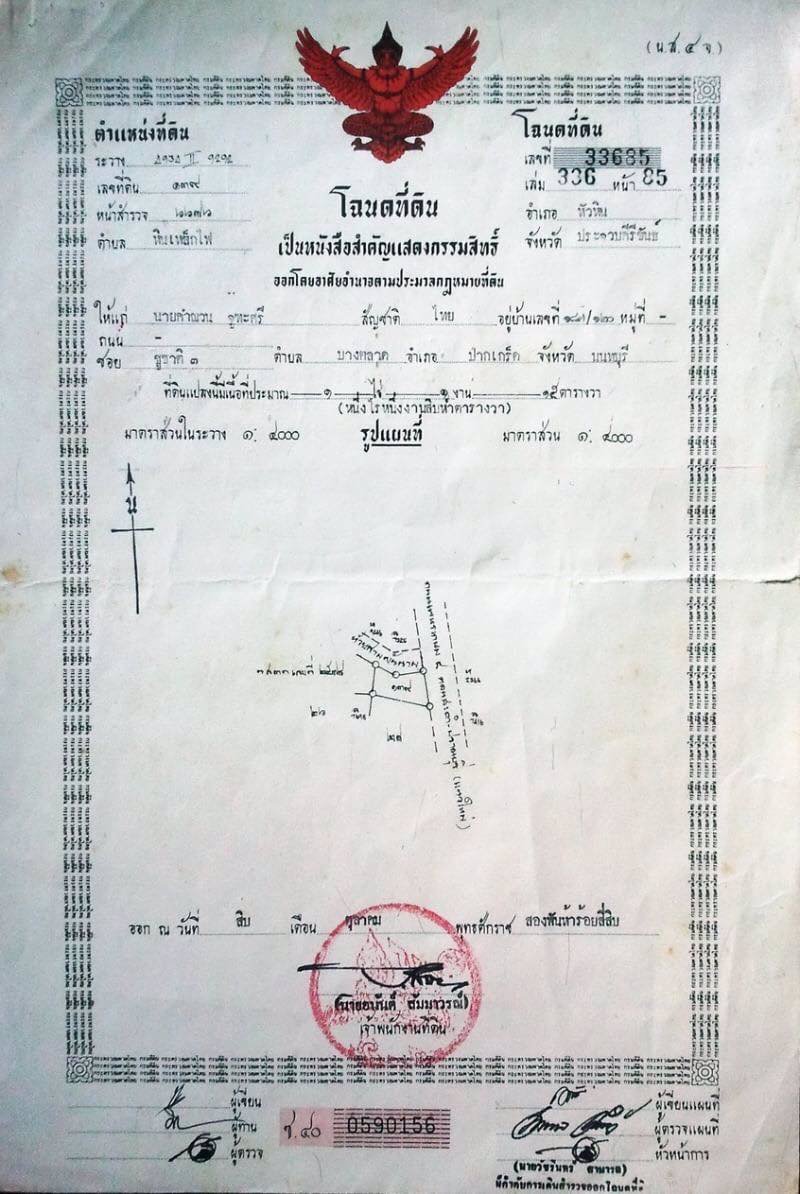 (น.ส.๔ จ)
ตำแหน่งที่ดิน
ระวาง
เลขที่ดิน ๑๓๙
หน้าสำรวจ
ตำบล หินเหล็กไฟ
โฉนดที่ดิน
เลขที่ 33685
เล่ม 336 หน้า 85
อำเภอ หัวหิน
จังหวัด ประจวบคีรีขันธ์
โฉนดที่ดิน
เป็นหนังสือสำคัญแสดงกรรมสิทธิ์
ออกโดยอาศัยอำนาจตามประมวลกฎหมายที่ดิน
ให้แก่ นายคำนวน สัญชาติ ไทย อยู่บ้านเลขที่ หมู่ที่ -
ถนน -
ซอย ชูชาติ ๓ ตำบล บางตลาด อำเภอ ปากเกร็ด จังหวัด นนทบุรี
ที่ดินแปลงนี้มีเนื้อที่ประมาณ ๑ ไร่ ๑ งาน ๑๕ ตารางวา
(หนึ่งไร่หนึ่งงานสิบห้าตารางวา)
มาตราส่วนในระวาง ๑: ๔๐๐๐ รูปแผนที่ มาตราส่วน ๑: ๔๐๐๐
น
๑๓๙
๒๖
๒๗
ออก ณ วันที่ สิบ เดือน ตุลาคม พุทธศักราช สองพันห้าร้อยสี่สิบ
เจ้าพนักงานที่ดิน
ผู้เขียน
ผู้ทาน
ผู้ตรวจ
ช.๔๐ 0590156
ผู้เขียนแผนที่
ผู้ตรวจแผนที่
หัวหน้าการ